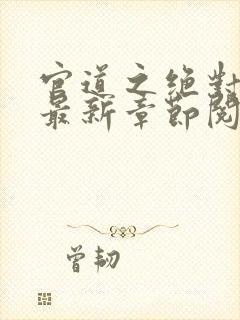 官道之绝对
最新章节阅
曾韧